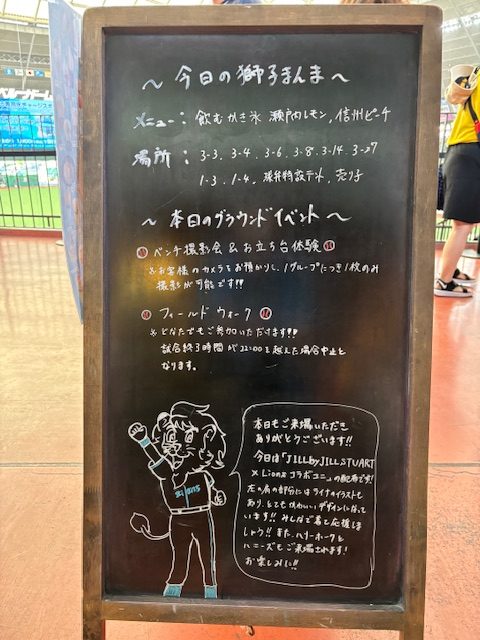 ベルーナドーム
〜 今日の獅子まんま 〜
メニュー： 飲むかき氷 瀬戸内レモン, 信州ピーチ
場所 ： 3-3, 3-4, 3-6, 3-8, 3-14, 3-27
1-3, 1-4, 深井特設テント, 売り子
〜 本日のグラウンドイベント 〜
ベンチ撮影会 & お立ち台体験
※お客様のカメラをお預かりし、1グループにつき1枚のみ
撮影が可能です!!
フィールド ウォーク
※どなたでもご参加いただけます!!
試合終了時間が22:00を越えた場合中止と
なります。
本日もご来場いただき
ありがとうございます!!
今日は「JILL by JILL STUART
× Lions コラボユニ」の配布です!
左の肩の部分にはライナのイラストも
あり、とてもかわいいデザインになって
います!! みんなで着て応援しま
しょう!! また、ハリーホークと
ハニーズもご来場されます!
お楽しみに!!